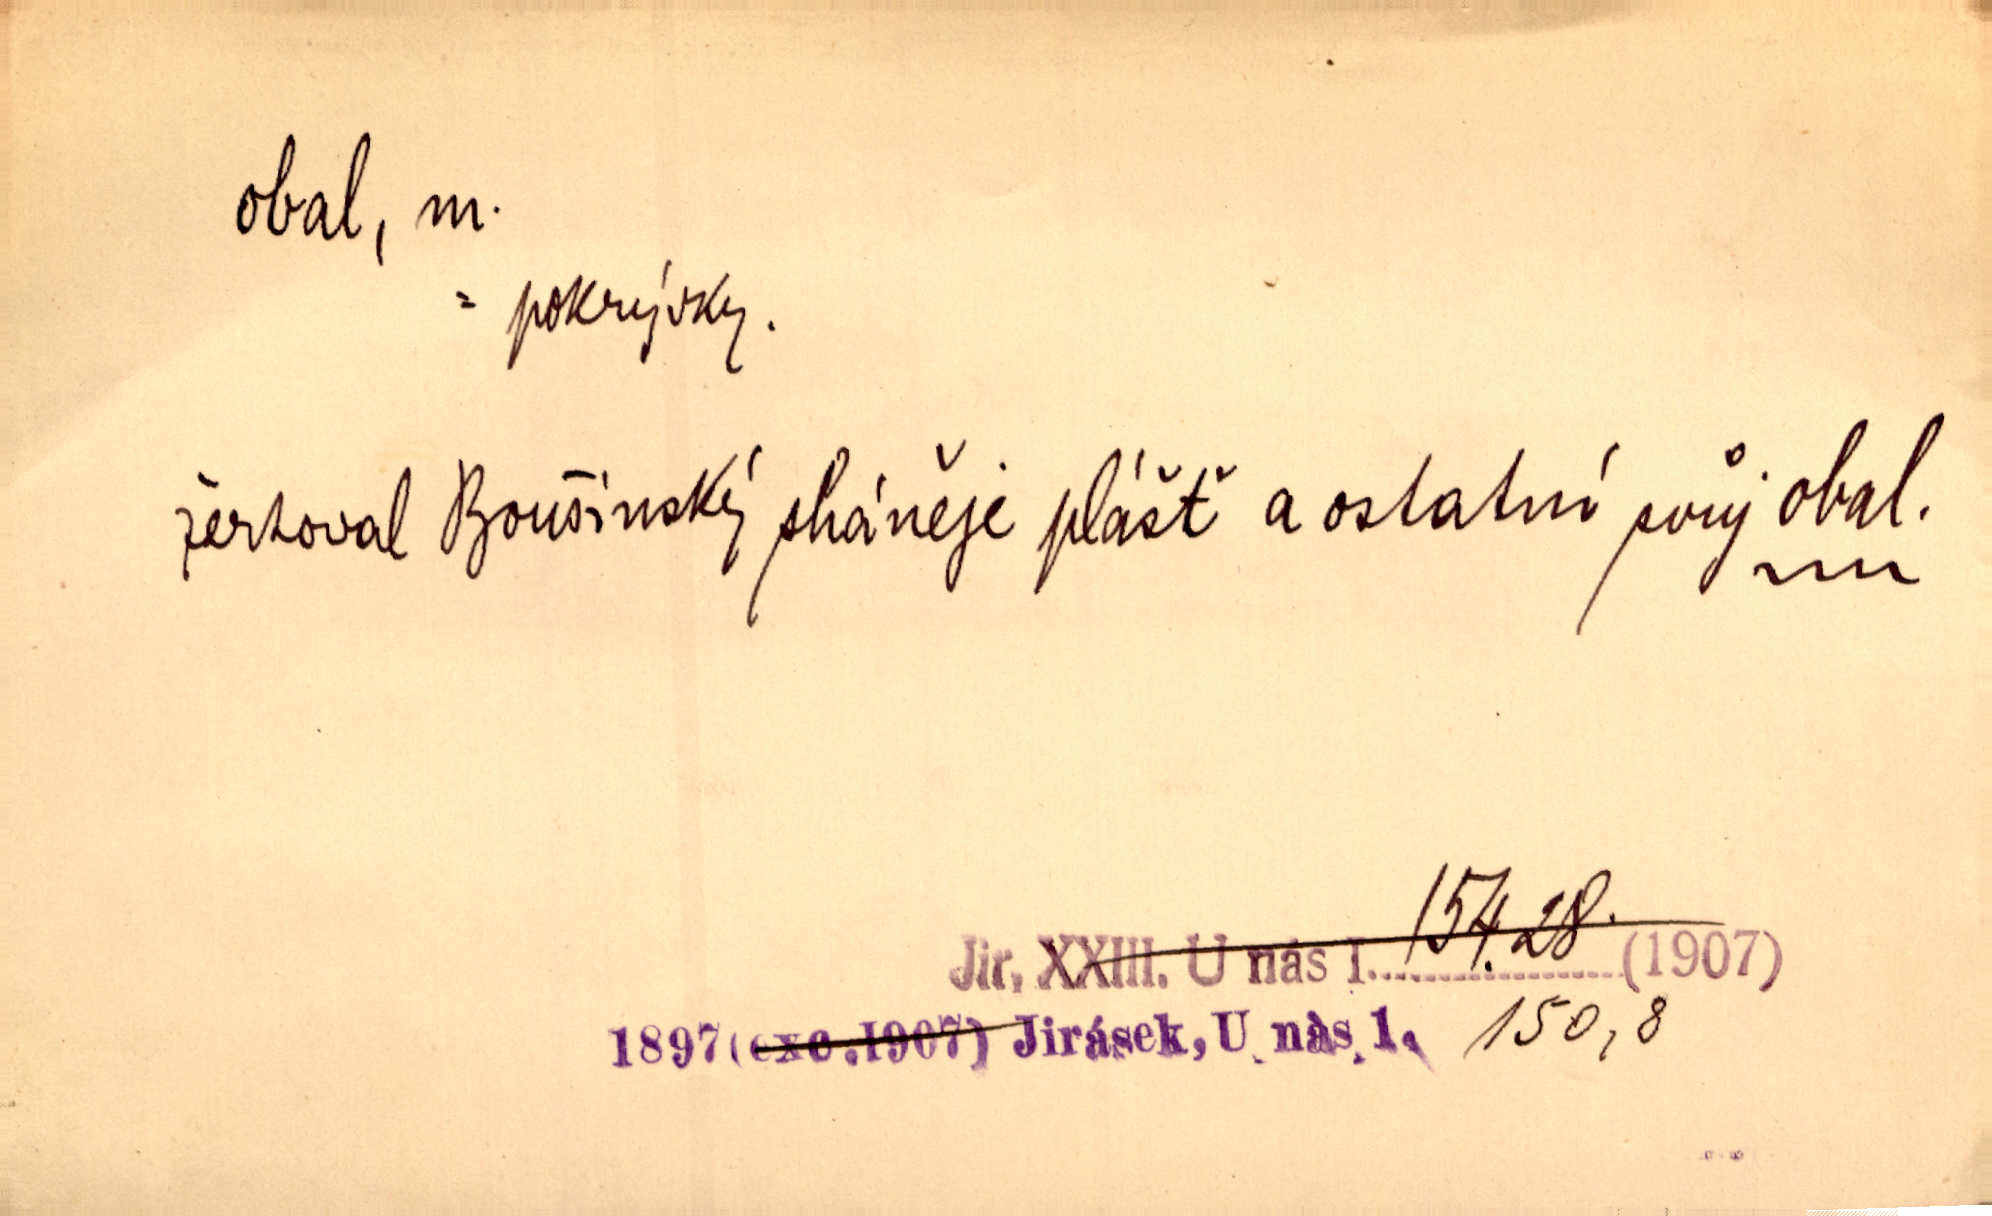 obal, m.
= pokrývky.
žertoval Boušinský sháněje plášť a ostatní svůj obal.
154.28.
Jir. XXIII. U nás I. (1907)
1897 (exc. 1907) Jirásek, U nás 1. 150,8